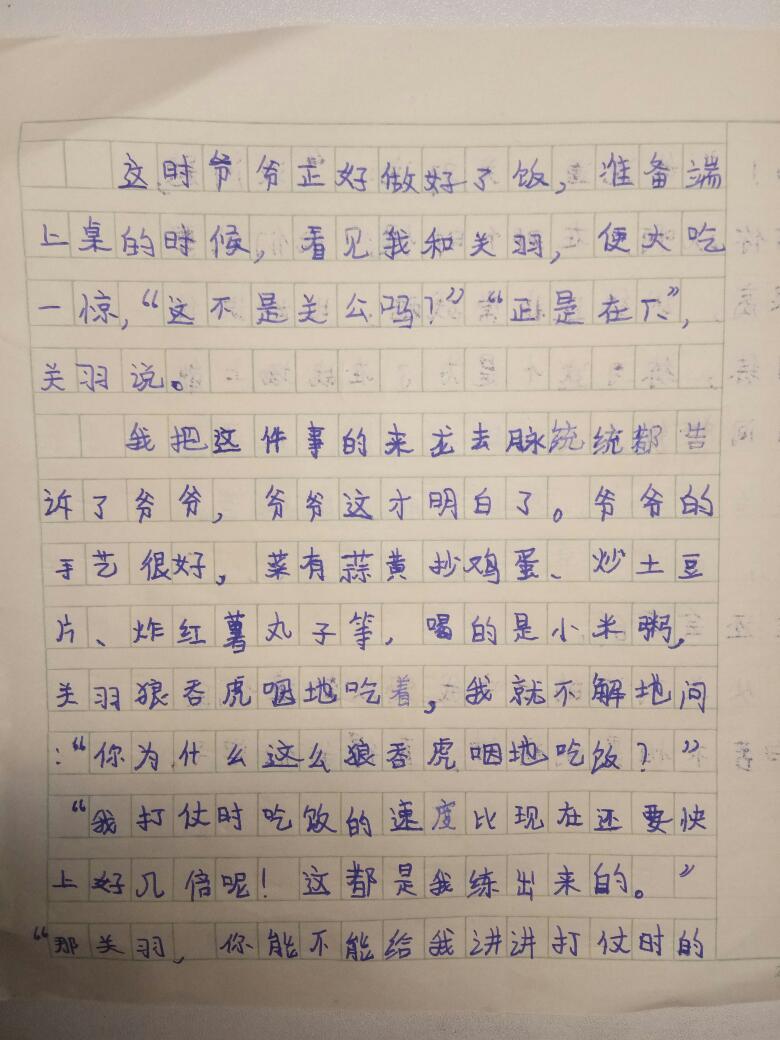 这时爷爷正好做好了饭，准备端
上桌的时候，看见我和关羽，便大吃
一惊，“这不是关公吗？”“正是在下”，
关羽说。
我把这件事的来龙去脉统统都告
诉了爷爷，爷爷这才明白了。爷爷的
手艺很好，菜有蒜黄抄鸡蛋、炒土豆
片、炸红薯丸子等，喝的是小米粥，
关羽狼吞虎咽地吃着，我就不解地问
：“你为什么这么狼吞虎咽地吃饭？”
“我打仗时吃饭的速度比现在还要快
上好几倍呢！这都是我练出来的。”
“那关羽，你能不能给我讲讲打仗时的